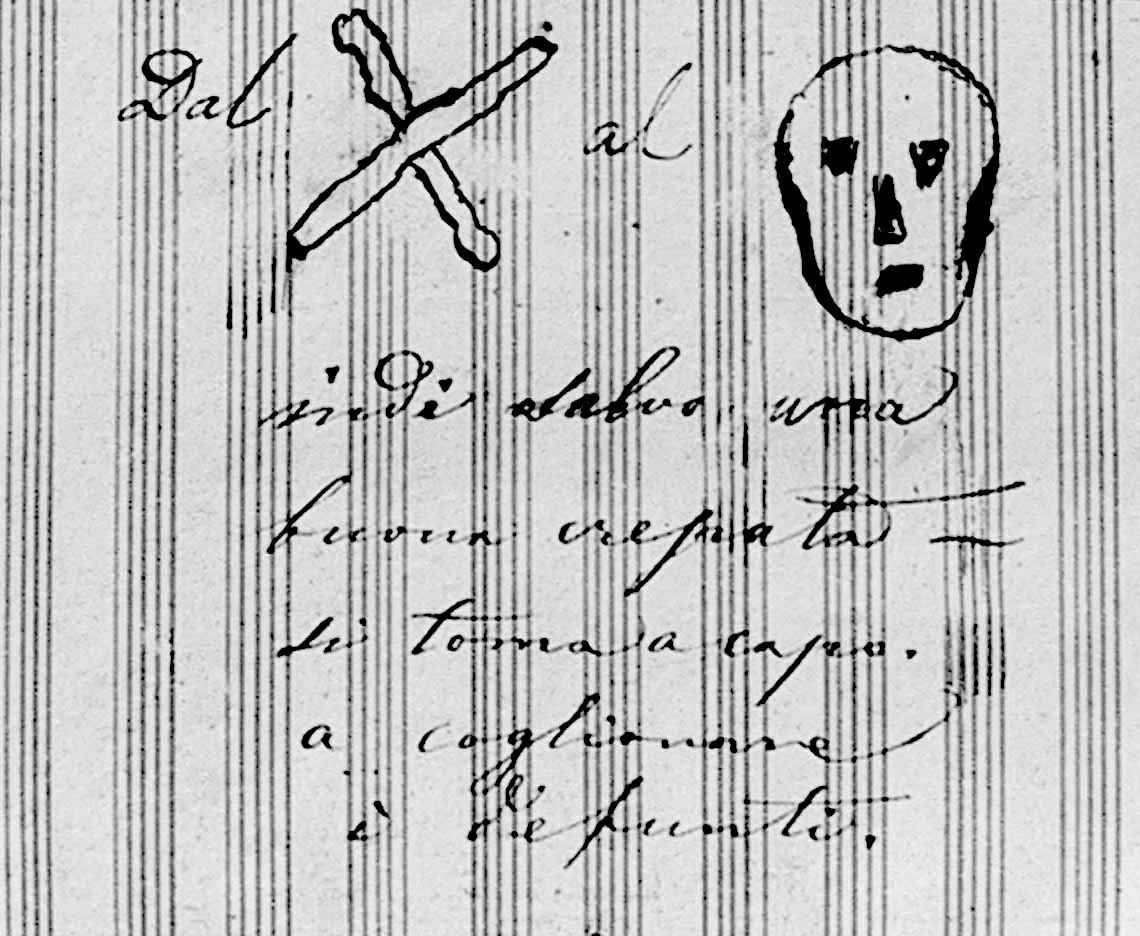 Dal al
indi salvo una
buona crepata —
si torna a capo.
a coglionare
i defunti.